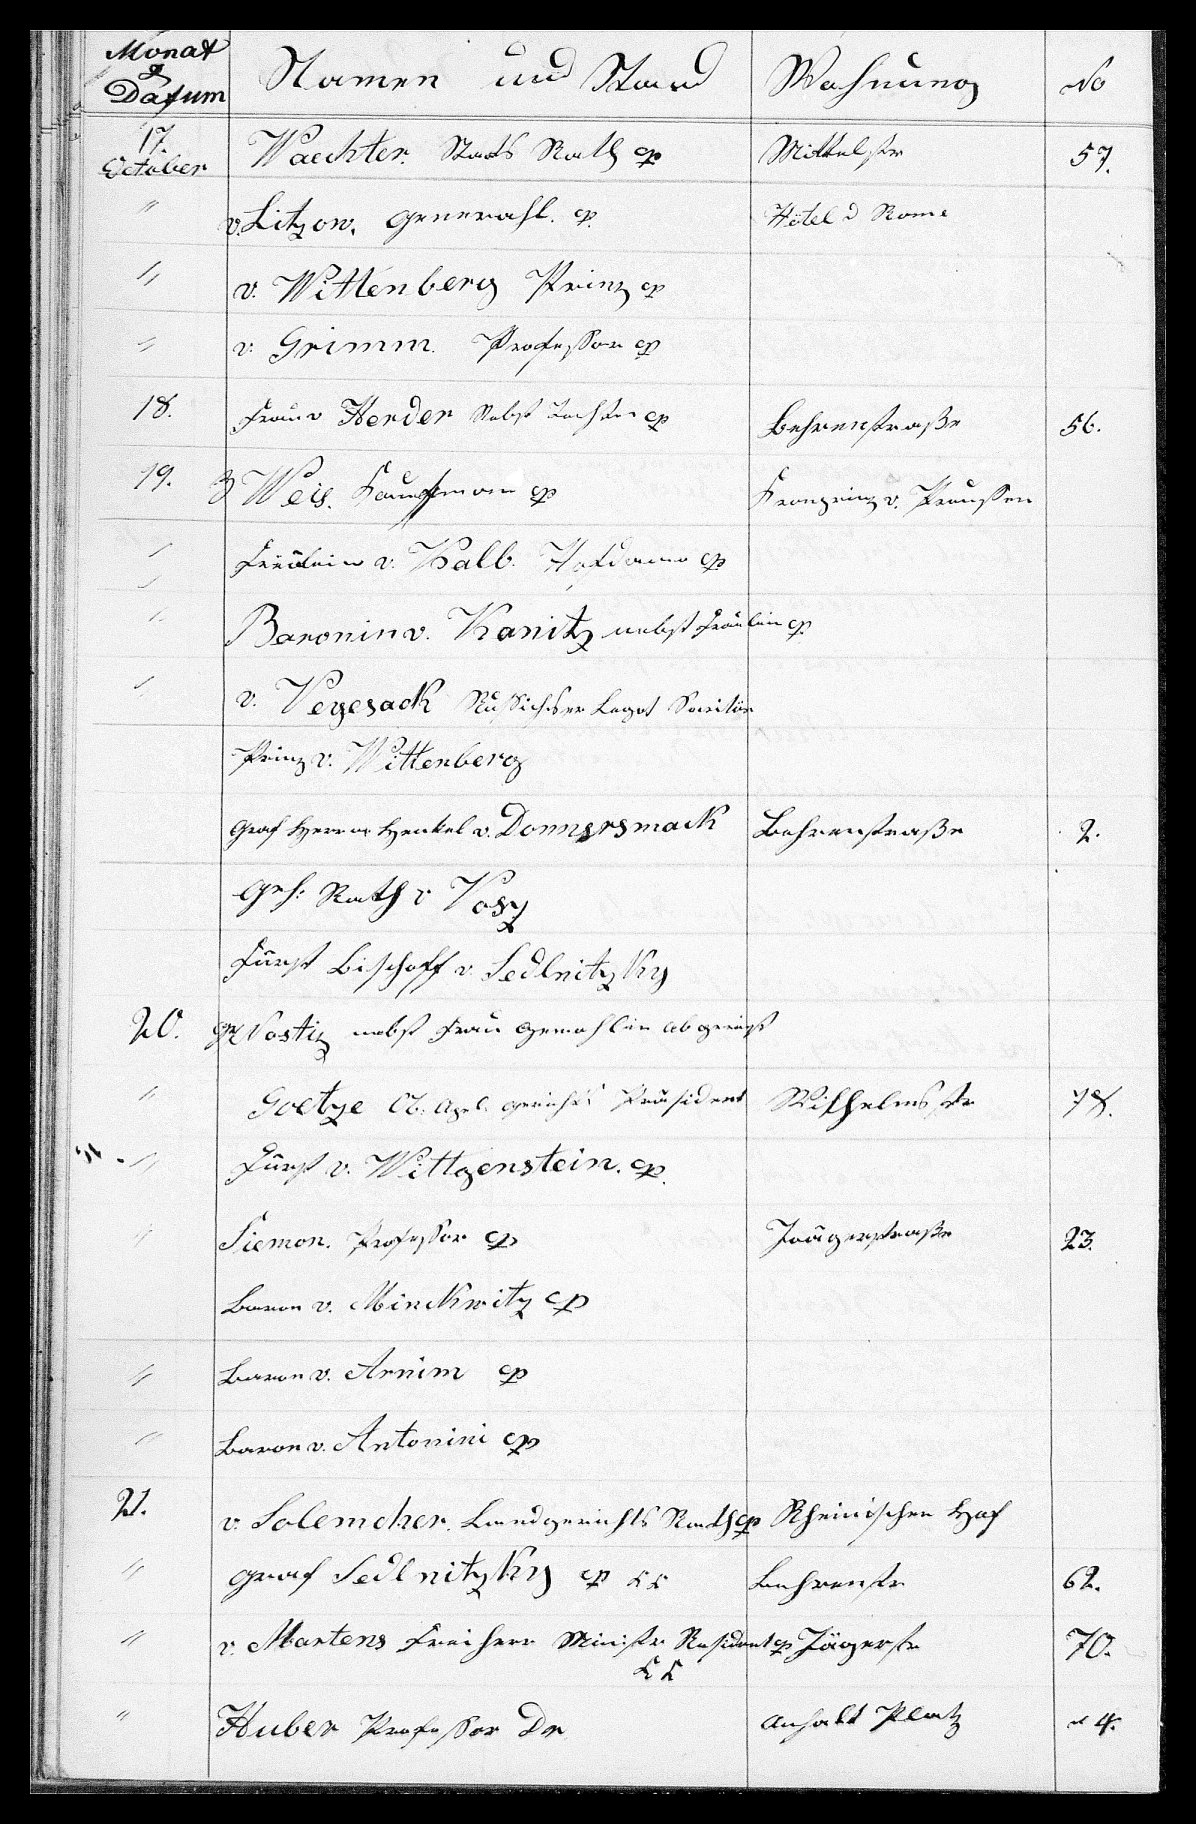 Monat & Datum Namen und Stand Wohnung No
17. October Waechter. Staats Rath cp Mittelstr 57.
" v. Litzow. Generahl. cp. Hôtel d Rome
" v. Wittenberg Prinz cp
" v. Grimm. Professor cp
18. Frau v Herder Nebst Tochter cp Behrenstraße 56.
19. Weis. Kaufmann cp Kronprinz v. Preussen
" Fräulein v. Kalb. Hofdame cp
" Baronin v. Kanitz nebst Fräulein cp.
" v. Vegesack Russischer Legat
Prinz v. Wittenberg
Graf Henkel v. Donnersmack Behrenstraße 2.
Geh: Rath v Vosz
Fürst Bischoff v. Sedlnitzky
20. Gr Nostiz nebst Frau Gemahlin abgereist
" Goetze Ob. Apel. Gerichts Präsident Wilhelmsstr 78.
" Fürst v. Wittgenstein. cp.
" Siemon. Professor cp Jaägerstraße 23.
Baron v. Minckwitz cp
" Baron v. Arnim cp
" Baron v. Antonini cp
21. v. Solemcher. Landgerichts Rath cp Rheinischen Hof
" Graf Sedlnitzky cp KK Behrenstr 62.
" v. Martens Freiherr Ministr Resident cp Jägerstr 70.
KK
" Huber Professor Dr Anhalt Platz 4.